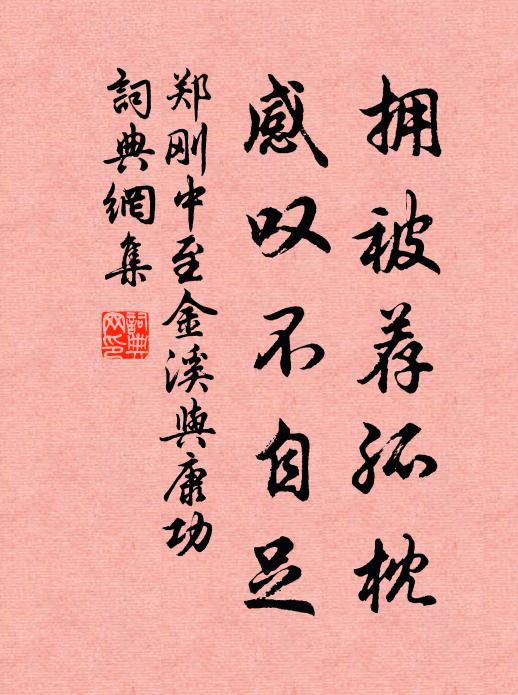 拥被荐孤枕
感叹不自足
郑刚中至金溪与康功
詞典網集
詞典网印